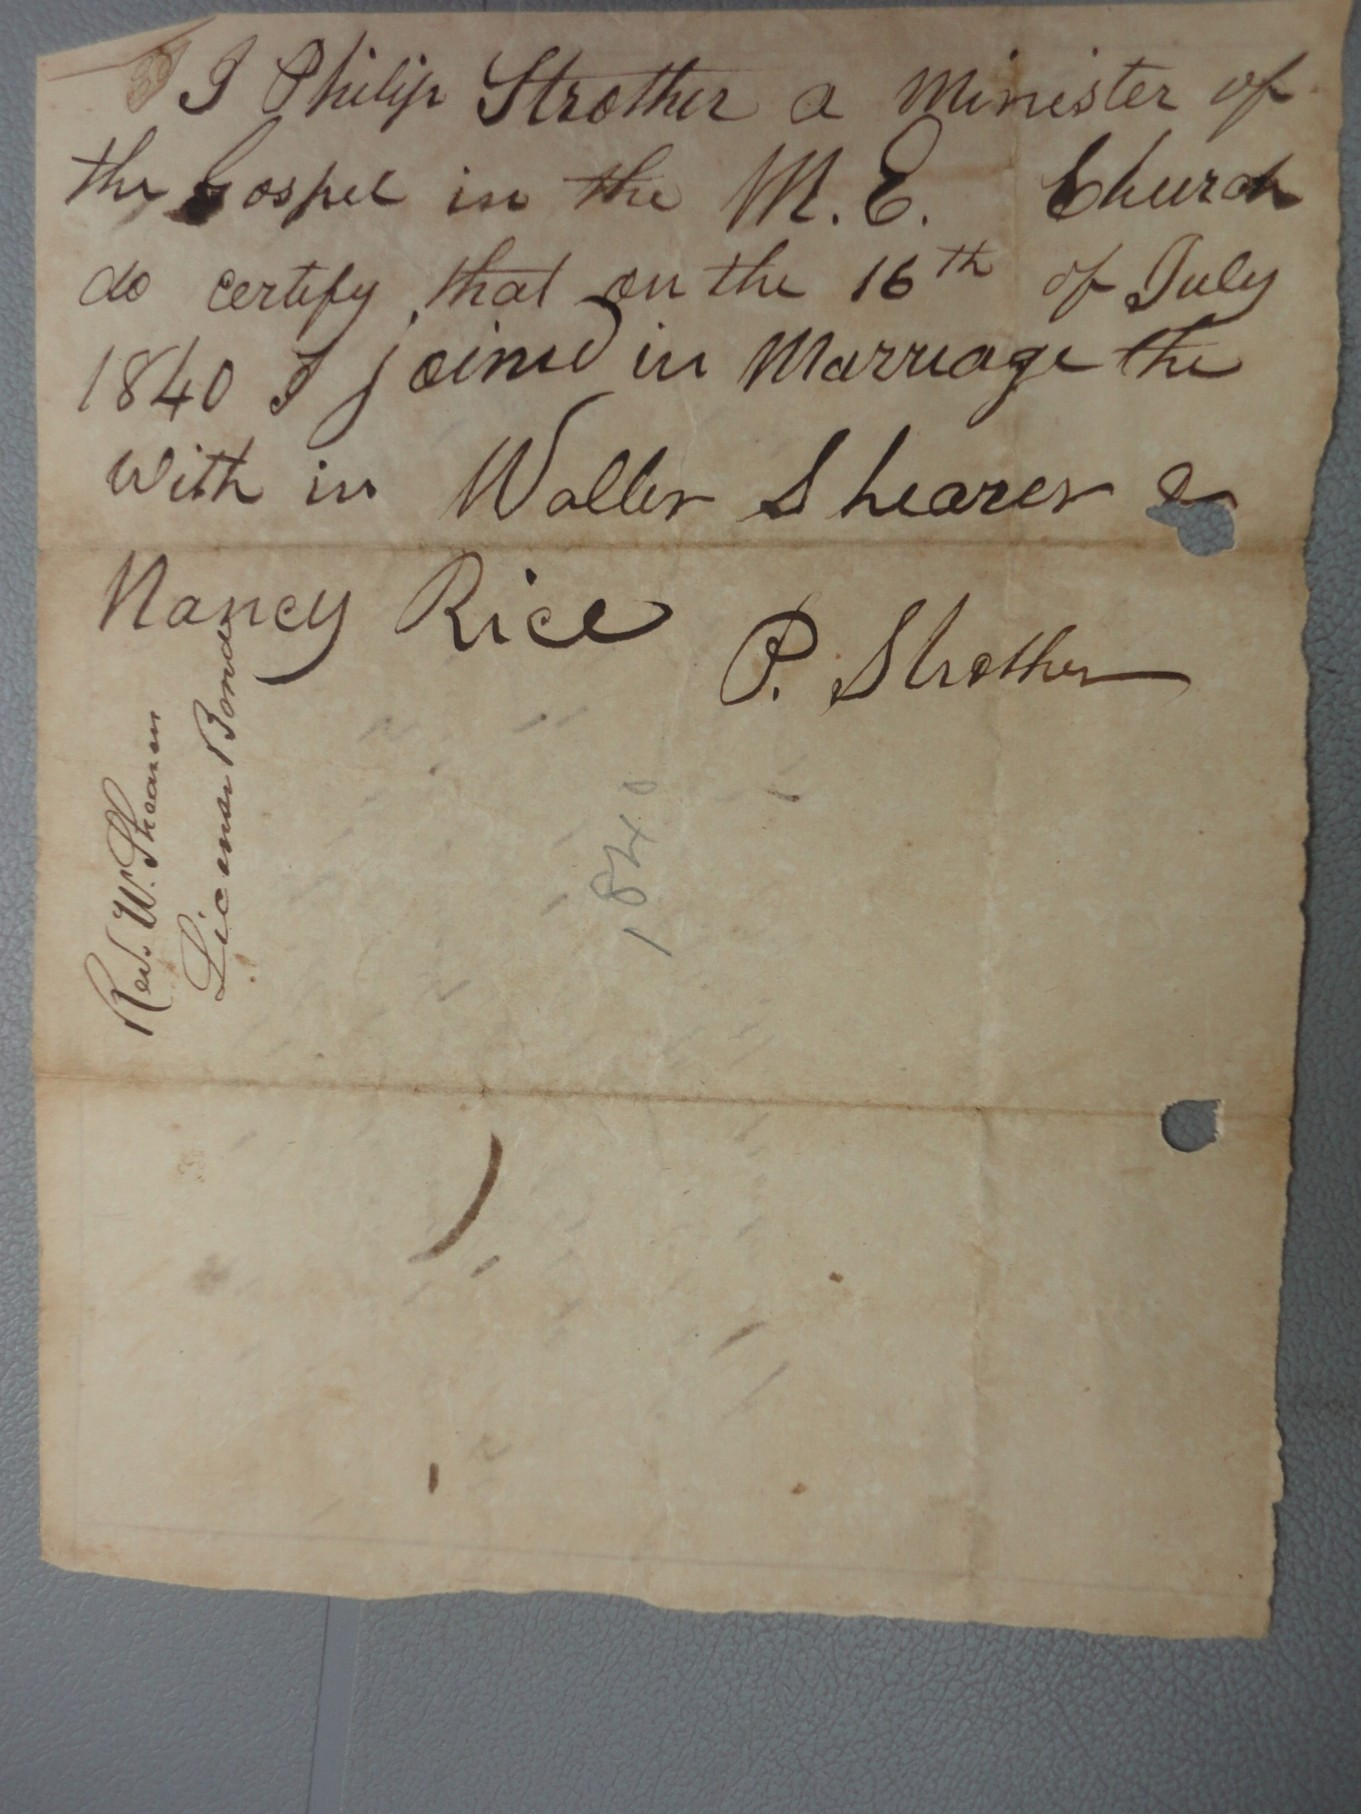 I Philip Strother a Minister of
the Gospel in the M. E. Church
do certify that on the 16th of July
1840 I joined in Marriage the
with in Waller Shearer &
Nancy Rice
P. Strother
Rev. W. Shearer
License Bond
1840